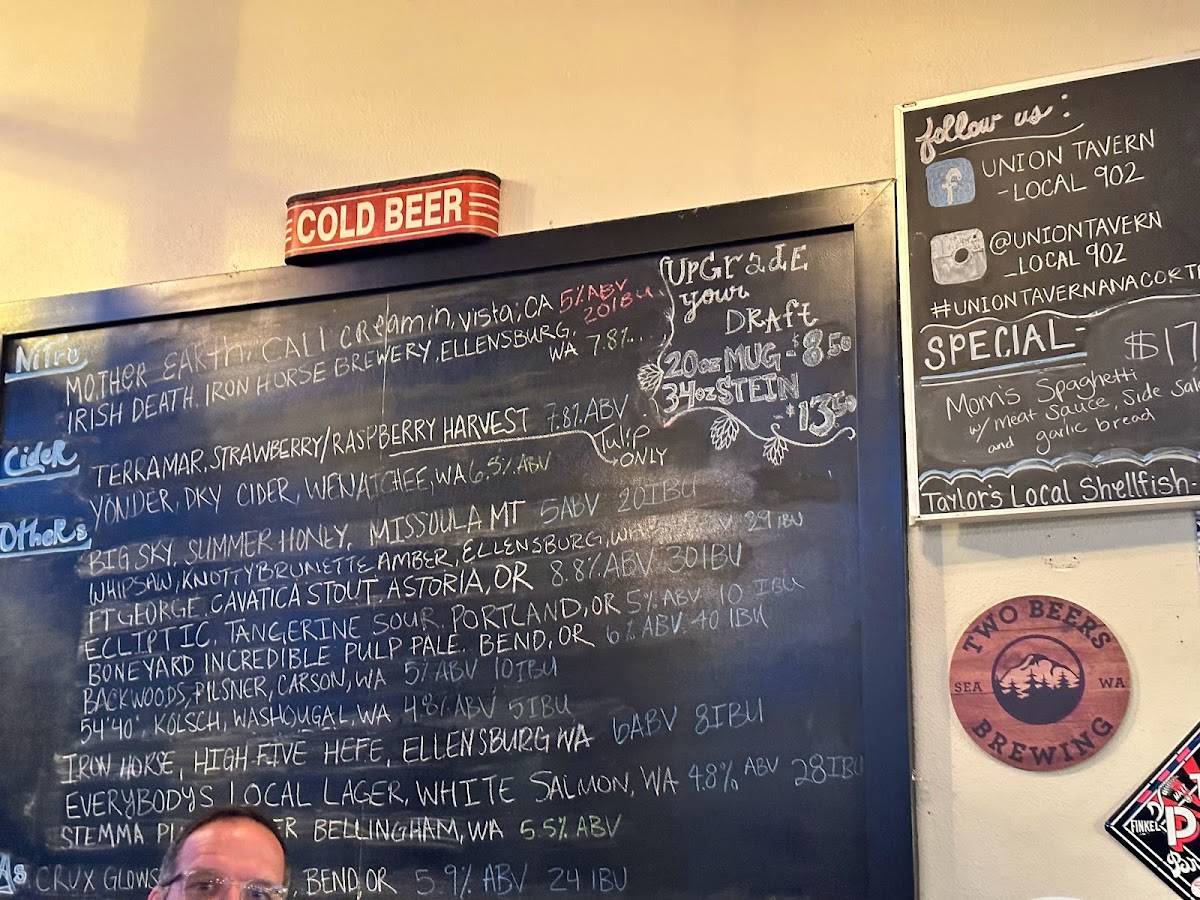 COLD BEER
Nitro
MOTHER EARTH, CALI CREAMIN, VISTA, CA 5% ABV 20IBU
IRISH DEATH. IRON HORSE BREWERY, ELLENSBURG, WA 7.8%
Cider
TERRAMAR, STRAWBERRY/RASPBERRY HARVEST 7.8% ABV
Tulip
ONLY
YONDER, DRY CIDER, WENATCHEE, WA 6.5% ABV
OTHERS
BIG SKY, SUMMER HONEY, MISSOULA MT 5ABV 20IBU
WHIPSAW, KNOTTY BRUNETTE AMBER, ELLENSBURG, 29 IBU
FT GEORGE. CAVATICA STOUT. ASTORIA, OR 8.8% ABV 30IBU
ECLIPTIC. TANGERINE SOUR. PORTLAND, OR 5% ABV 10 IBU
BONEYARD INCREDIBLE PULP PALE. BEND, OR 6% ABV. 40 IBU
BACKWOODS, PILSNER, CARSON, WA 5% ABV 10IBU
54°40', KOLSCH, WASHOUGAL, WA 4.8% ABV 5IBU
IRON HORSE, HIGH FIVE HEFE, ELLENSBURG WA 6ABV 8IBU
EVERYBODYS LOCAL LAGER, WHITE SALMON, WA 4.8% ABV 28IBU
STEMMA BELLINGHAM, WA 5.5% ABV
CRUX GLOWS BEND, OR 5.9% ABV 24 IBU
UPGradE
your
DRAft
20oz MUG - $8.50
34oz STEIN
- $13.50
follow us:
f
UNION TAVERN
-LOCAL 902
@UNIONTAVERN
_LOCAL 902
#UNIONTAVERNANACORT
SPECIAL- $17
Mom's Spaghetti
w/ meat sauce, side Sal
and garlic bread
Taylor's Local Shellfish-
TWO BEERS
SEA WA
BREWING
FINKEL